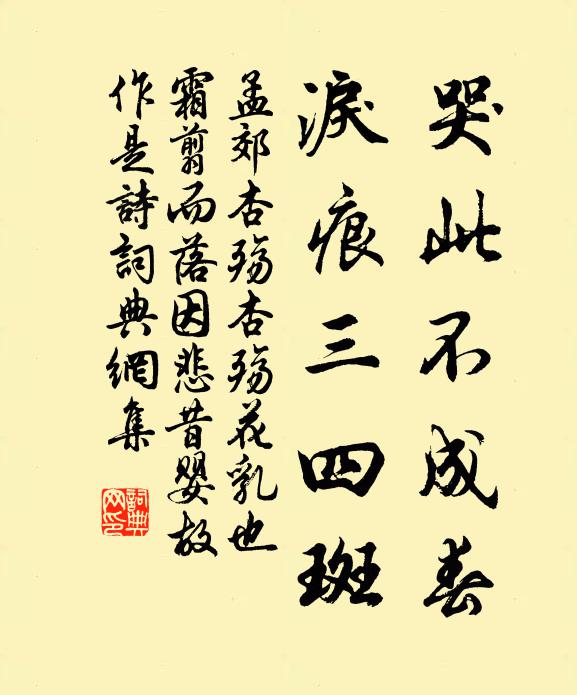 哭此不成春
淚痕三四斑
孟郊杏殤杏殤花乳也
霜剪而落因悲昔嬰故
作是詩詞典網集
詞典
网印